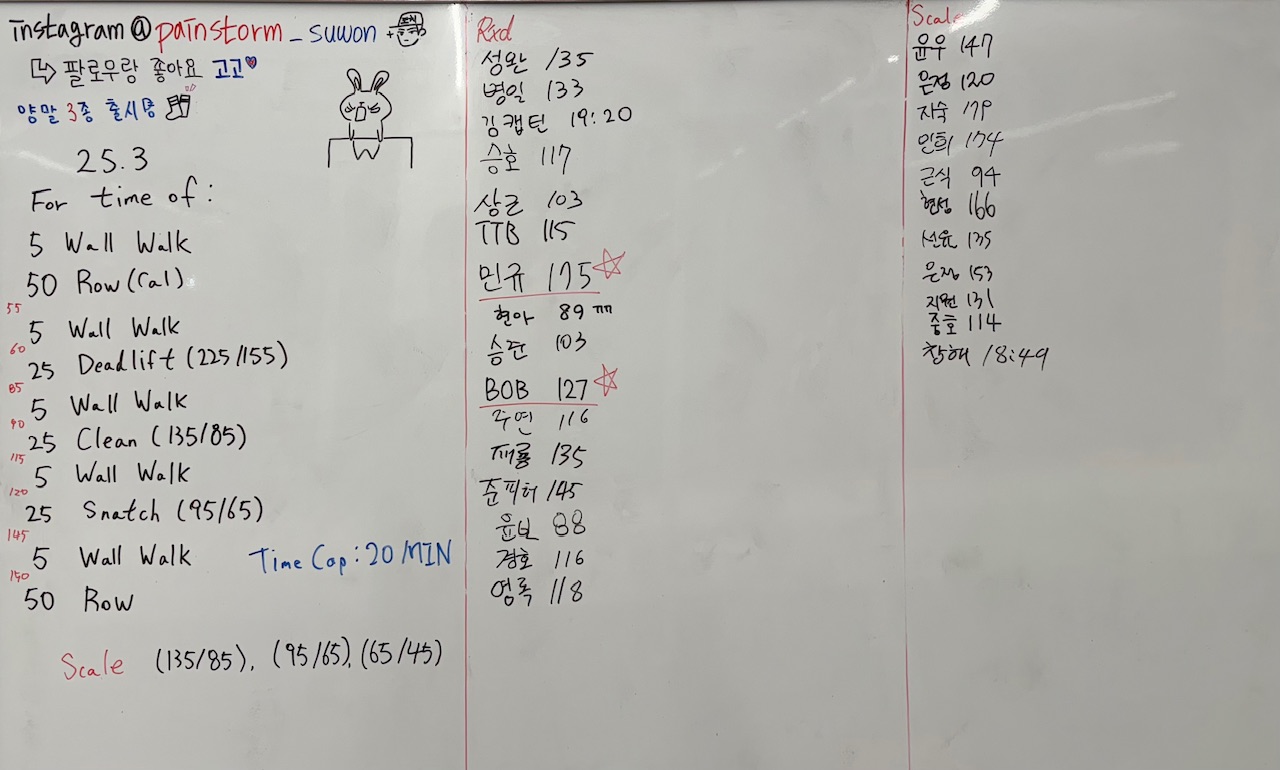 instagram@painstorm_suwon +
팔로우랑 좋아요 고고
양말 3종 출시중
25.3
For time of:
5 Wall Walk
50 Row(Cal)
55
5 Wall Walk
60
25 Deadlift (225/155)
85
5 Wall Walk
90
25 Clean (135/85)
115
5 Wall Walk
120
25 Snatch (95/65)
145
5 Wall Walk
Time Cap: 20 MIN
150
50 Row
Scale (135/85), (95/65), (65/45)
Rxd
성완 135
병일 133
김캡틴 19:20
승호 117
상근 103
TTB 115
민규 175
현아 89 ㅠㅠ
승준 103
BOB 127
주연 116
재룡 135
준피터 145
윤보 88
경호 116
영록 118
Scale
윤우 147
은정 120
지숙 179
인희 174
근식 94
현성 166
선유 135
은정 153
지원 131
종호 114
창해 18:49